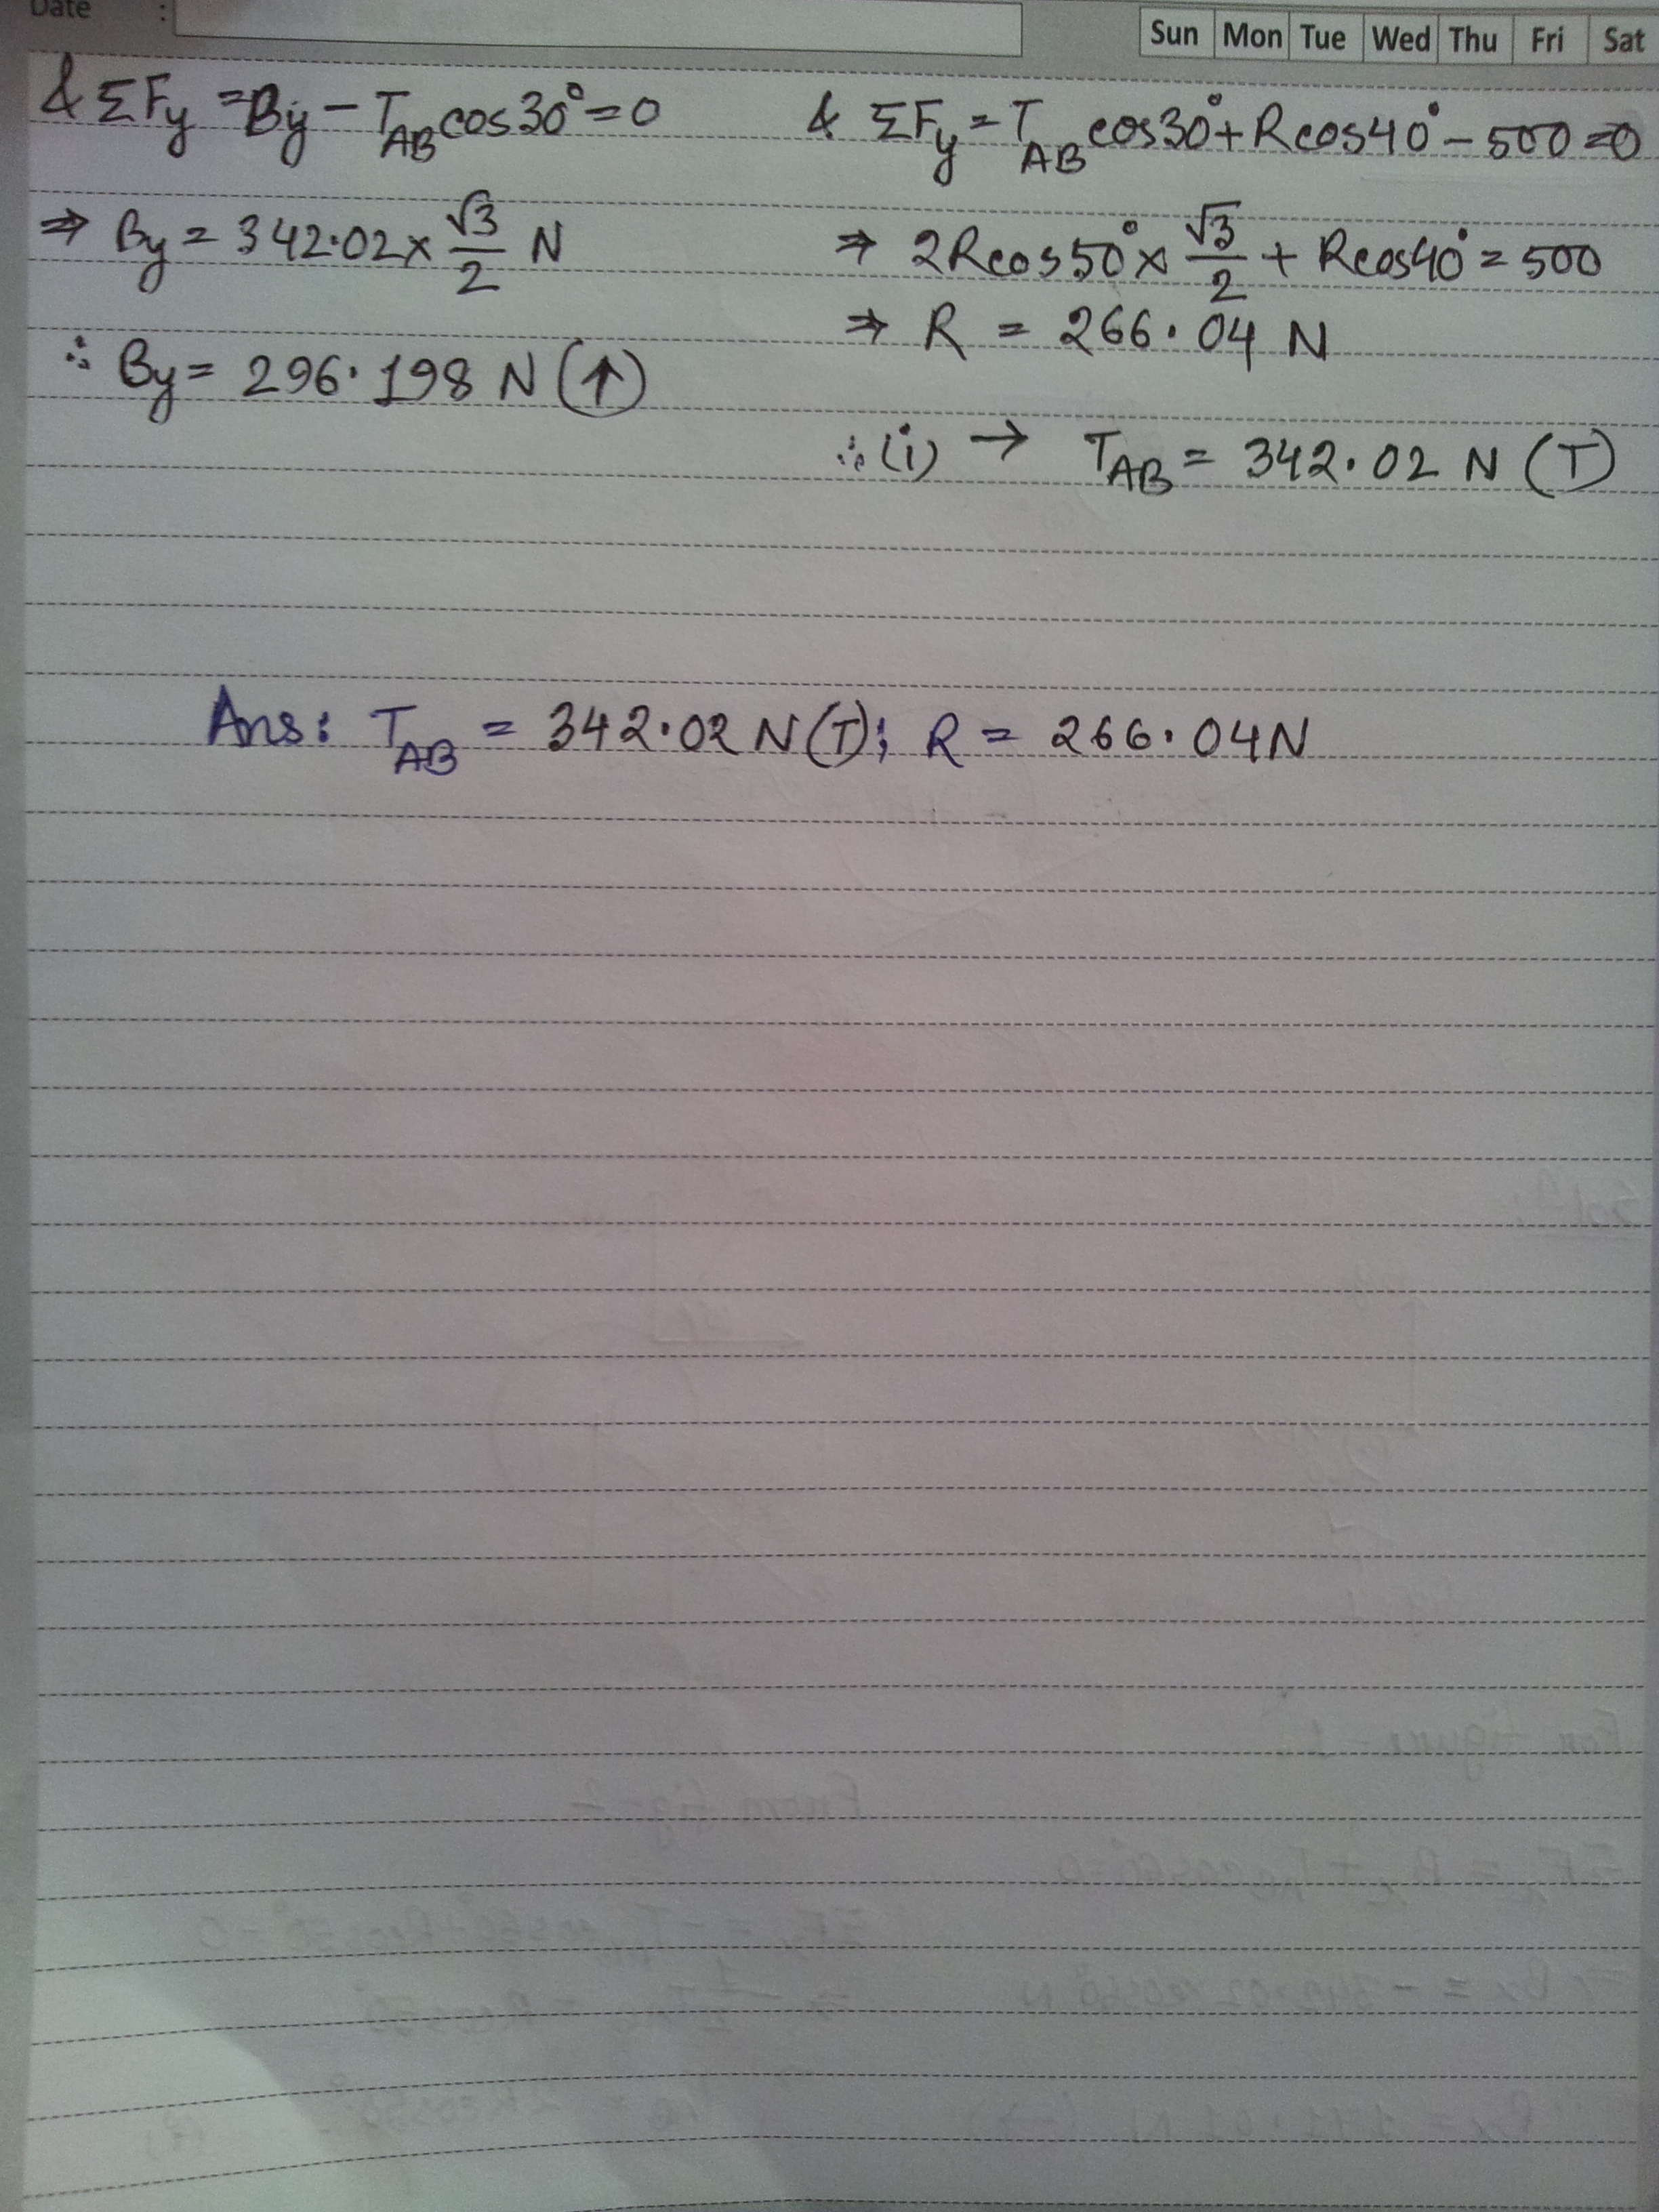 Date :
Sun Mon Tue Wed Thu Fri Sat
& ΣFy = By − T_AB cos30° = 0
⇒ By = 342.02 × √3/2 N
∴ By = 296.198 N (↑)
& ΣFy = T_AB cos30° + R cos40° − 500 = 0
⇒ 2R cos50° × √3/2 + R cos40° = 500
⇒ R = 266.04 N
∴ (i) → T_AB = 342.02 N (T)
Ans: T_AB = 342.02 N (T); R = 266.04 N